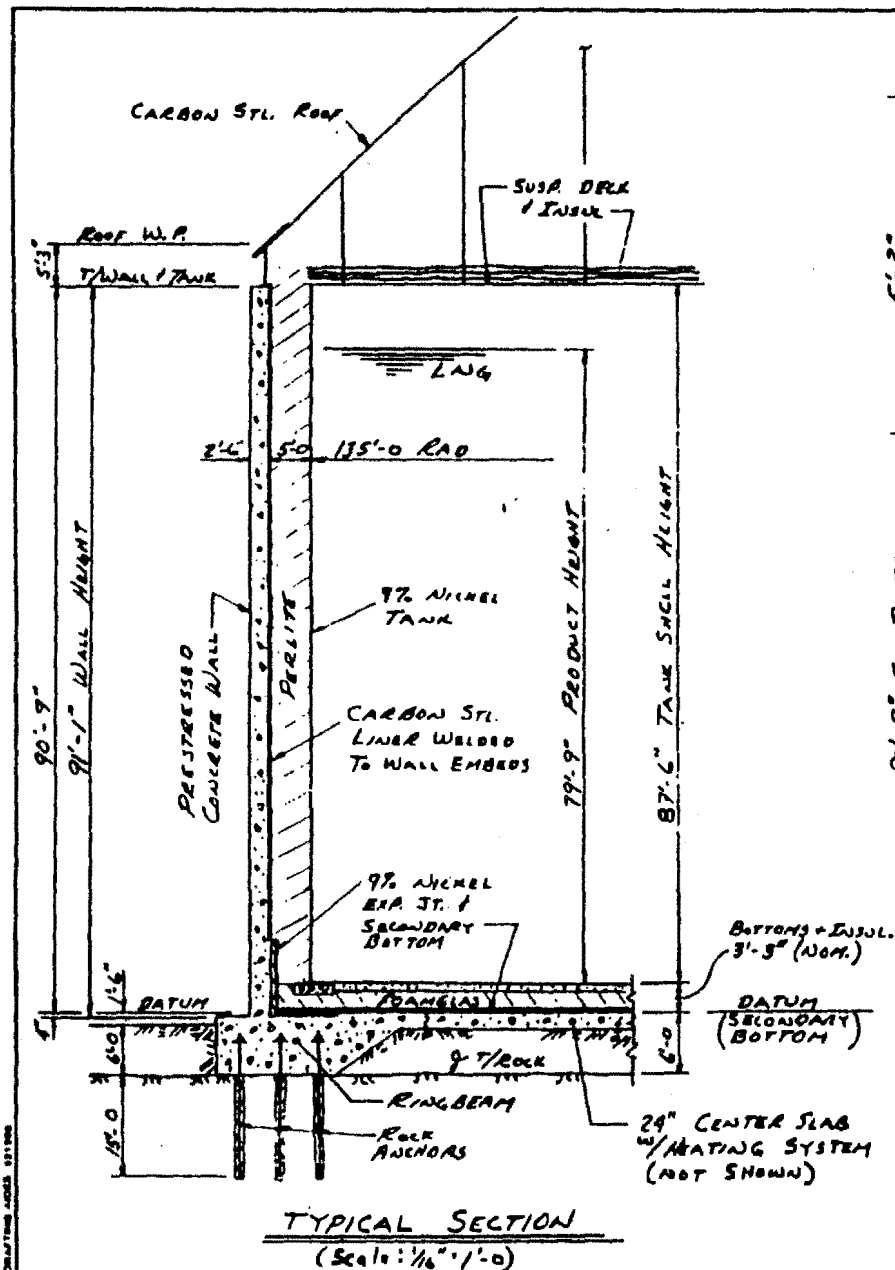 CARBON STL. ROOF
SUSP. DECK
& INSUL
ROOF W.P.
5'-3"
T/WALL & TANK
LNG
5'-0
135'-0 RAD
90'-9"
91'-1" WALL HEIGHT
PRESTRESSED
CONCRETE WALL
PERLITE
9% NICKEL
TANK
CARBON STL.
LINER WELDED
TO WALL EMBEDS
79'-9" PRODUCT HEIGHT
87'-6" TANK SHELL HEIGHT
9% NICKEL
EXP. JT. &
SECONDARY
BOTTOM
BOTTOMS + INSUL.
3'-3" (NOM.)
1'-6"
DATUM
FOAMGLAS
DATUM
(SECONDARY
BOTTOM)
6'-0
6'-0
T/ROCK
RINGBEAM
15'-0
ROCK
ANCHORS
24" CENTER SLAB
W/HEATING SYSTEM
(NOT SHOWN)
TYPICAL SECTION
(Scale: 1/16" = 1'-0)